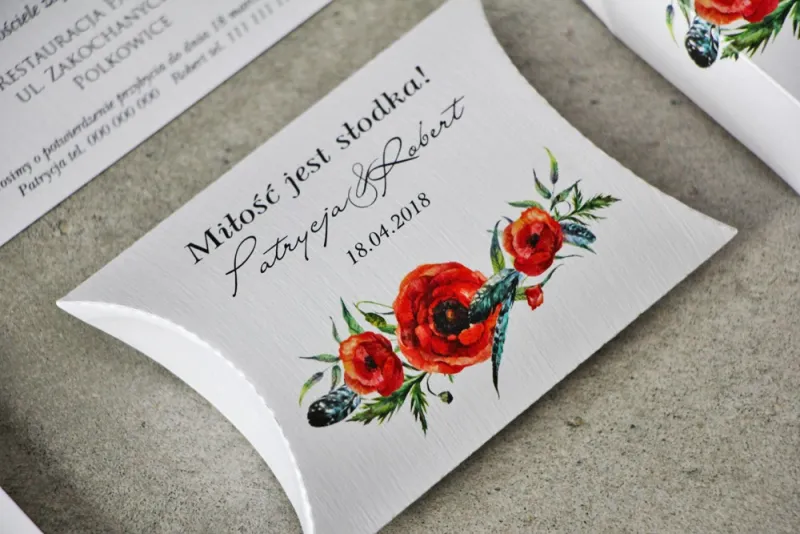 RESTAURACJA
UL. ZAKOCHANYCH
POLKOWICE
o potwierdzenie przybycia do dnia 18
Patrycja tel. 000 000 000 Robert tel. 111 111
Miłość jest słodka!
Patrycja & Robert
18.04.2018